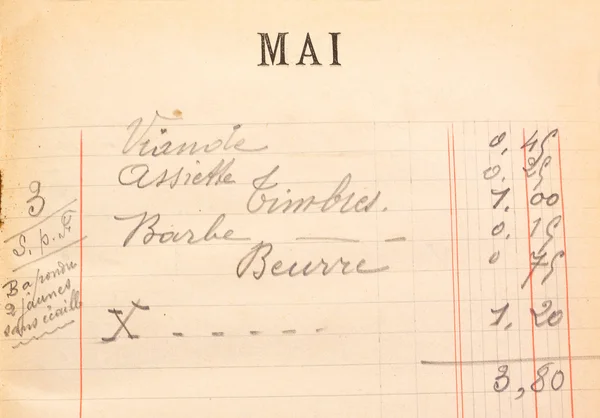 MAI
Viande 0,45
Assiette 0.25
Timbres. 1,00
Barbe — - 0,15
Beurre 0 75
X - - - - - - 1,20
3,80
3
S. p. F
B a pondu
2 jaunes
sans écaille